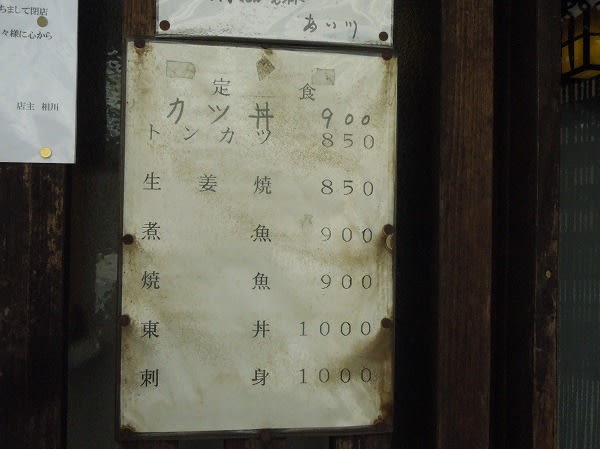 ちまして閉店
々様に心から
店主 相川
あい川
定食
カツ丼 900
トンカツ 850
生姜焼 850
煮魚 900
焼魚 900
東丼 1000
刺身 1000